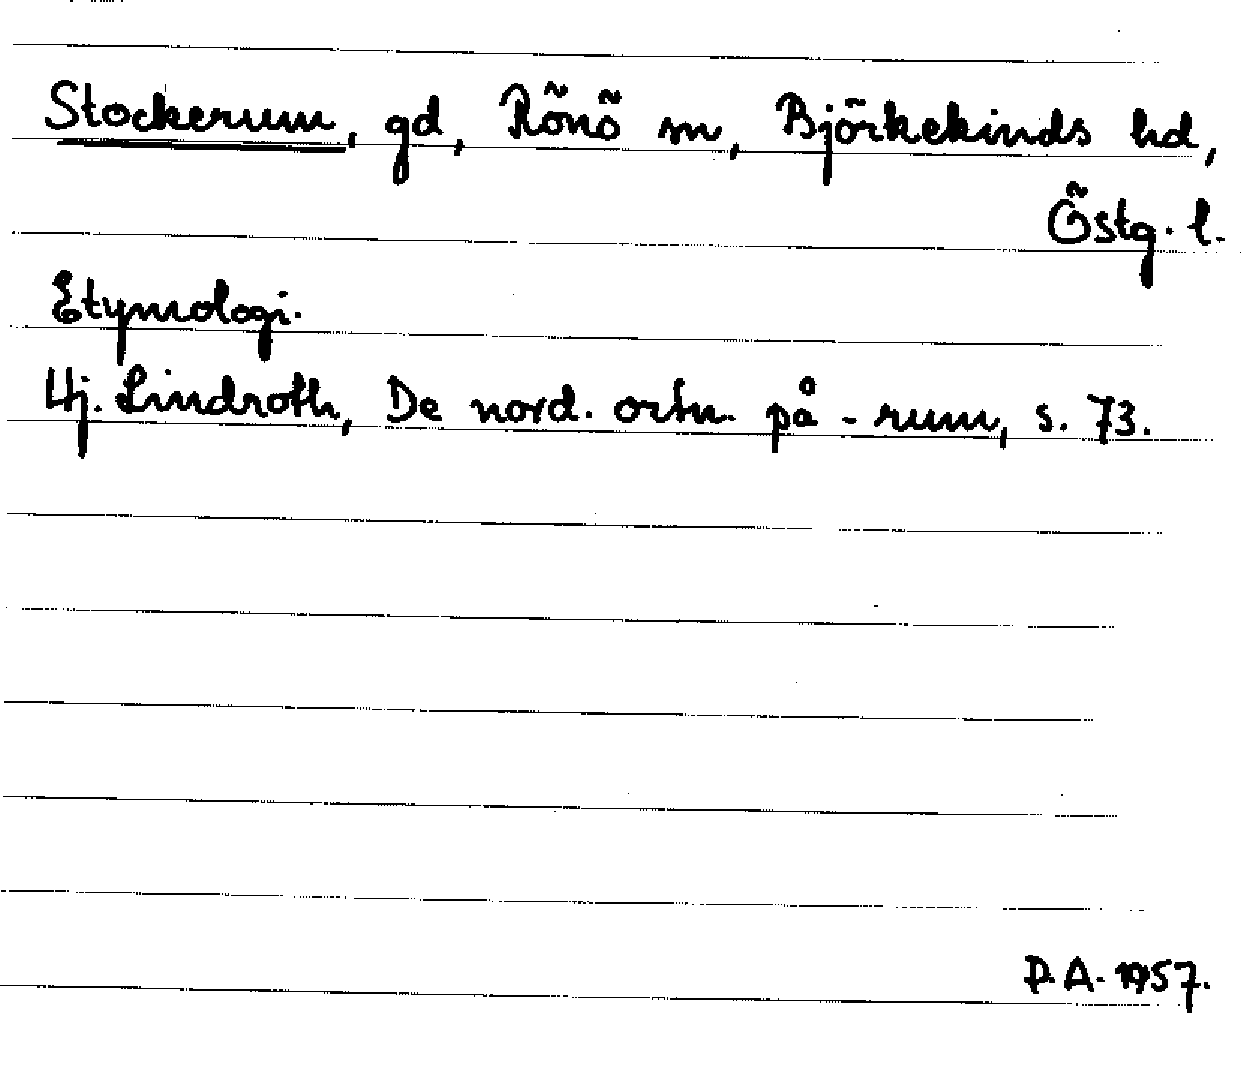 Stockerum, gd, Rönö sn, Björkekinds hd,
Östg. l.
Etymologi.
Hj. Lindroth, De nord. ortn. på -rum, s. 73.
D.A. 1957.